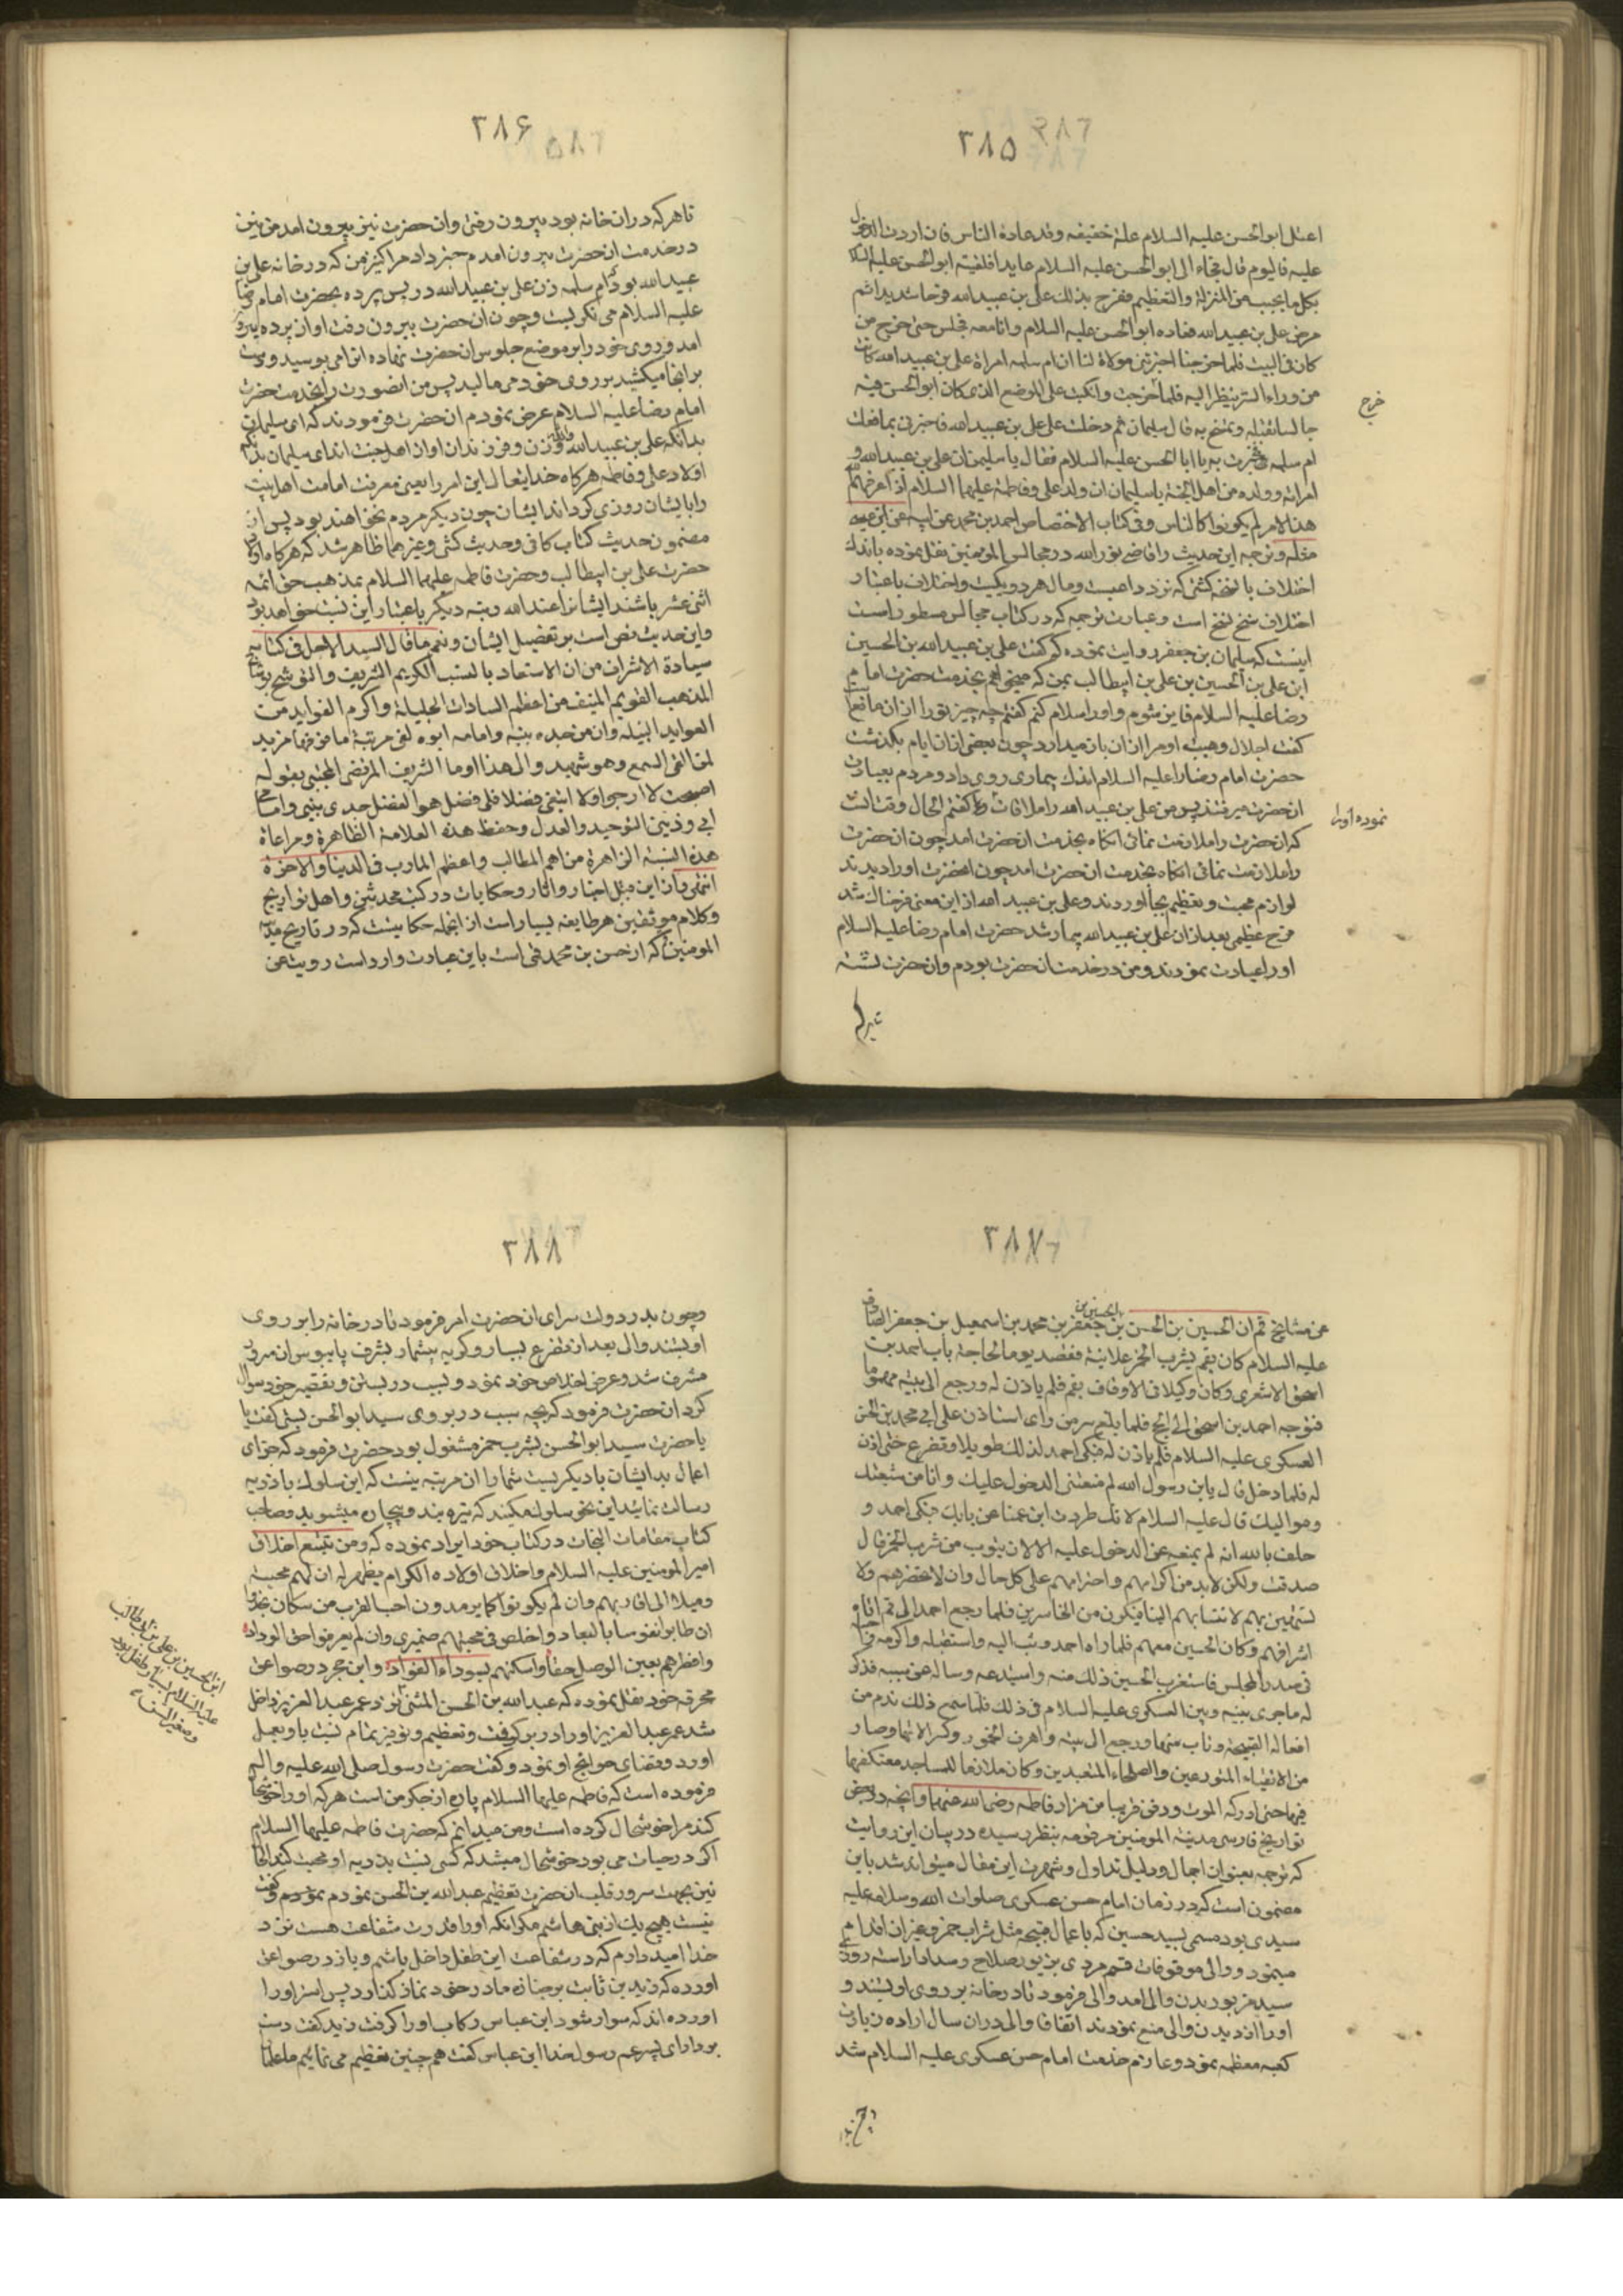 ۳۸۵
اعتل ابوالحسن علیه السلام علة خفیفه وقد عاده الناس فان اردت الدخول
علیه فالیوم قال فجاء الی ابوالحسن علیه السلام عایدا فلقیته ابوالحسن علیه السلام
بکل ما یجب من المنزلة والتعظیم ففرح بذلک علی بن عبید الله فرحا شدیدا ثم
مرض علی بن عبید الله فعاده ابوالحسن علیه السلام وانا معه فجلس حتی خرج من
کان فی البیت فلما خرجنا اخبرتنی مولاة لنا ان ام سلمه امراة علی بن عبید الله کانت
من وراء الستر ینظر الیه فلما خرجت وانکبت علی الموضع الذی کان ابوالحسن فیه
خرج
جالسا تقبله وتمسح به قال سلیمان ثم دخلت علی علی بن عبید الله فاخبرنی بما فعلت
ام سلمه فخبرت به یا ابا الحسن علیه السلام فقال یا سلیمن ان علی بن عبید الله و
امراته وولده من اهل الجنة یا سلیمان ان ولد علی وفاطمة علیهما السلام اذا عرفهم الله
هذا الامر لم یکونوا کالناس وفی کتاب الاختصاص احمد بن محمد عن ابیه عن ابن عیسی
مثله وترجمه این حدیث را قاضی نور الله در مجالس المومنین نقل نموده باندک
اختلاف با نسخه کشی که نزد داعیست ومال هر دو یکیست واختلاف باعتبار
اختلاف نسخ است وعبارت ترجمه که در کتاب مجالس مسطور است
اینست که سلیمان بن جعفر روایت نموده که گفت علی بن عبید الله بن الحسین
ابن علی بن الحسین بن علی بن ابیطالب بمن که میخواهم بخدمت حضرت امام
رضا علیه السلام فایز شوم و او را سلام کنم گفتم چه چیز تو را از ان مانع است
گفت اجلال وهیبت او مرا از ان باز میدارد چون بعضی از ان ایام بگذشت
حضرت امام رضا را علیه السلام اندک بیماری روی داد و مردم بعیادت
ان حضرت میرفتند پس من علی بن عبید الله را ملاقات گفتم الحال وقت انست
نموده او را
که ان حضرت را ملازمت نمائی انکاه بخدمت ان حضرت امد چون ان حضرت
را ملازمت نمائی انکاه بخدمت ان حضرت امد چون انحضرت او را دیدند
لوازم محبت و تعظیم بجا اوردند و علی بن عبید الله از این معنی فرحناک شد
فرح عظیمی بعد از ان علی بن عبید الله بیمار شد حضرت امام رضا علیه السلام
او را عیادت نمودند و من در خدمت انحضرت بودم وان حضرت نشسته
۳۸۶
تا هر که در ان خانه بود بیرون رفت وان حضرت نیز بیرون امد من نیز
در خدمت ان حضرت بیرون امدم خبر داد مرا کنیز من که در خانه علی بن
عبید الله بود که ام سلمه زن علی بن عبید الله در پس پرده بحضرت امام رضا
علیه السلام می نکریست و چون ان حضرت بیرون رفت او از پرده بیرون
امد و روی خود را بر موضع جلوس ان حضرت نهاده انرا می بوسید و دست
بر انجا میکشید بر روی خود می مالید پس من انصورت را بخدمت حضرت
امام رضا علیه السلام عرض نمودم ان حضرت فرمودند که ای سلیمان
بدانکه علی بن عبید الله وزن و فرزندان او از اهل جنت اند ای سلیمان بدانکه
اولاد علی و فاطمه هر کاه خدایتعالی این امر را یعنی معرفت امامت اهل بیت
را بایشان روزی کرداند ایشان چون دیکر مردم نخواهند بود پس از
مضمون حدیث کتاب کافی و حدیث کشی و غیرهما ظاهر شد که هر کاه اولاد
حضرت علی بن ابیطالب و حضرت فاطمه علیهما السلام بمذهب حق ائمه
اثنی عشر باشند ایشانرا عند الله رتبه دیکر باعتبار این نسبت خواهد بود
واین حدیث نص است بر تفضیل ایشان ونعم ما قال السید الاجل فی کتابه
سیادة الاشراف من ان الاستعاد بالنسب الکریم الشریف والتوشح بوشاح
المذهب القویم المنیف من اعظم السادات الجلیلة واکرم الفواید من
العواید النبیله وان من جده نبیه وامامه ابوه لفی مرتبة ما من فها مزید
لمن القی السمع وهو شهید والی هذا اوما الشریف المرتضی المجتبی بقوله
اصبحت لا ارجو ولا ابتغی فضلا فلی فضل هو الفضل جدی نبیی وامامی
ابی و دینی التوحید والعدل وحفظ هذه العلامة الظاهرة ومراعاة
هذه النسبة الزاهرة من اهم المطالب واعظم المارب فی الدنیا والاخرة
انتهی وان این مثل اخبار واثار و حکایات در کتب محدثین و اهل تواریخ
وکلام موثقین هر طایفه بسیار است از انجمله حکایتیست که در تاریخ مدینة
المومنین که از حسن بن محمد قمی است باین عبارت وارد است رویت عن
۳۸۷
بن الحسین بن
عن مشایخ قم ان الحسین بن الحسن بن جعفر بن محمد بن اسمعیل بن جعفر الصادق
علیه السلام کان بقم یشرب الخمر علانیة فقصد یوما لحاجة باب احمد بن
اسحق الاشعری وکان وکیلا فی الاوقاف بقم فلم یاذن له ورجع الی بیته مهموما
فتوجه احمد بن اسحق الی الحج فلما بلغ سر من رای استاذن علی ابی محمد بن الحسن
العسکری علیه السلام فلم یاذن له فبکی احمد لذلک طویلا و تضرع حتی اذن
له فلما دخل قال یابن رسول الله لم منعتنی الدخول علیک وانا من شیعتک
وموالیک قال علیه السلام لانک طردت ابن عمنا عن بابک فبکی احمد و
حلف بالله انه لم یمنعه عن الدخول علیه الا لان یتوب من شرب الخمر قال
صدقت ولکن لابد من اکرامهم واحترامهم علی کل حال وان لا تحقرهم ولا
تستهین بهم لانتسابهم الینا فتکون من الخاسرین فلما رجع احمد الی قم اتاه
اشرافهم وکان الحسین معهم فلما راه احمد وثب الیه واستقبله واکرمه
فی صدر المجلس فاستغرب الحسین ذلک منه واستبدعه وساله عن سببه فذکر
له ما جری بینه وبین العسکری علیه السلام فی ذلک فلما سمع ذلک ندم من
افعاله القبیحة وتاب منها ورجع الی بیته واهرق الخمور وکسر الاتها وصار
من الاتقیاء المتورعین والصلحاء المتعبدین وکان ملازما للمساجد معتکفا
فیها حتی ادرکه الموت ودفن قریبا من مزار فاطمه رضی الله عنهما وانچه در بعض
تواریخ فارسی مدینة المومنین مرقومه بنظر رسیده در بیان این روایت
که ترجمه بعنوان اجمال و دلیل تداول و شهرت این مقال میتواند شد باین
مضمون است که در زمان امام حسن عسکری صلوات الله وسلامه علیه
سیدی بود مسمی بسید حسین که باعمال قبیحه مثل شراب خمر و غیر ان اقدام
مینمود و والی موقوفات قم مردی بزیور صلاح و سداد اراسته روزی
سید مزبور بدیدن والی امد والی فرمود تا در خانه بر روی او بستند و
او را از دیدن والی منع نمودند اتفاقا والی در ان سال اراده زیارت
کعبه معظمه نمود و عازم خدمت امام حسن عسکری علیه السلام شد
۳۸۸
وچون بدر دولت سرای ان حضرت امر فرمود تا در خانه را بر روی
او بستند والی بعد از تضرع بسیار و کریه بیشمار بشرف پابوس ان سرور
مشرف شد و عرض اخلاص خود نمود و سبب در بستن و تقصیر خود سوال
کرد ان حضرت فرمود که بچه سبب در بر روی سید ابوالحسن بستی گفت یا
یا حضرت سید ابوالحسن بشرب خمر مشغول بود حضرت فرمود که جزای
اعمال بد ایشان با دیکریست شما را ان مرتبه نیست که این سلوک با ذریه
رسالت نمائید این نحو سلوک میکنند که تیره بند و پیچان میشوید و صاحب
کتاب مقامات النجات در کتاب خود ایراد نموده که ومن تتبع اخلاق
امیر المومنین علیه السلام واخلاق اولاده الکرام یظهر له ان لهم محبة
ومیلا الی اقاربهم وان لم یکونوا کابر مدون احب القرب من سکان نجد
ان طابوا نفوسا بالبعاد واخلص فی محبتهم ضمیری وان لم یعرفوا حق الوداد
وانظرهم بعین الوصل حقا واسکنهم بسوداء الفواد وابن حجر در صواعق
محرقه خود نقل نموده که عبد الله بن الحسن المثنی نزد عمر عبد العزیز داخل
ابن الحسین بن علی بن ابی طالب
علیه السلام بسیار طفل بود
وصغیر السن
شد عمر عبد العزیز او را در بر گرفت و تعظیم و توقیر تمام نسبت باو بعمل
اورد و قضای حوائج او نمود و گفت حضرت رسول صلی الله علیه واله
فرموده است که فاطمه علیها السلام پاره از جکر من است هر که او را خوشحال
کند مرا خوشحال کرده است و من میدانم که حضرت فاطمه علیها السلام
اکر در حیات می بود خوشحال میشد که کسی نسبت بذریه او محبت کند الحال
نیز بجهت سرور قلب ان حضرت تعظیم عبد الله بن الحسن نمودم و گفت
نیست هیچ یک از بنی هاشم مکر انکه او را قدرت شفاعت هست نزد
خدا امید دارم که در شفاعت این طفل داخل باشم و باز در صواعق
اورده که زید بن ثابت بر جنازه مادر خود نماز کذارد پس استر او را
اورده اند که سوار شود ابن عباس رکاب او را کرفت زید گفت دست
بردار ای پسر عم رسول خدا ابن عباس گفت همچنین تعظیم می نمائیم ما علما